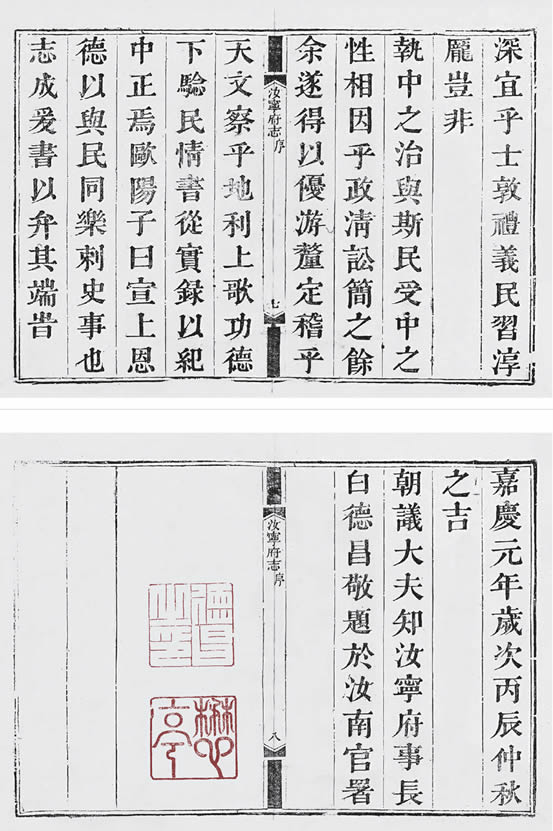 深宜乎士敦禮義民習淳
龐豈非
執中之治與斯民受中之
性相因乎政淸訟簡之餘
余遂得以優游釐定稽乎
汝寧府志序
七
天文察乎地利上歌功德
下驗民情書從實録以紀
中正焉歐陽子曰宣上恩
德以與民同樂刺史事也
志成爰書以弁其端旹
嘉慶元年歲次丙辰仲秋
之吉
朝議大夫知汝寧府事長
白德昌敬題於汝南官署
汝寧府志序
八
德昌